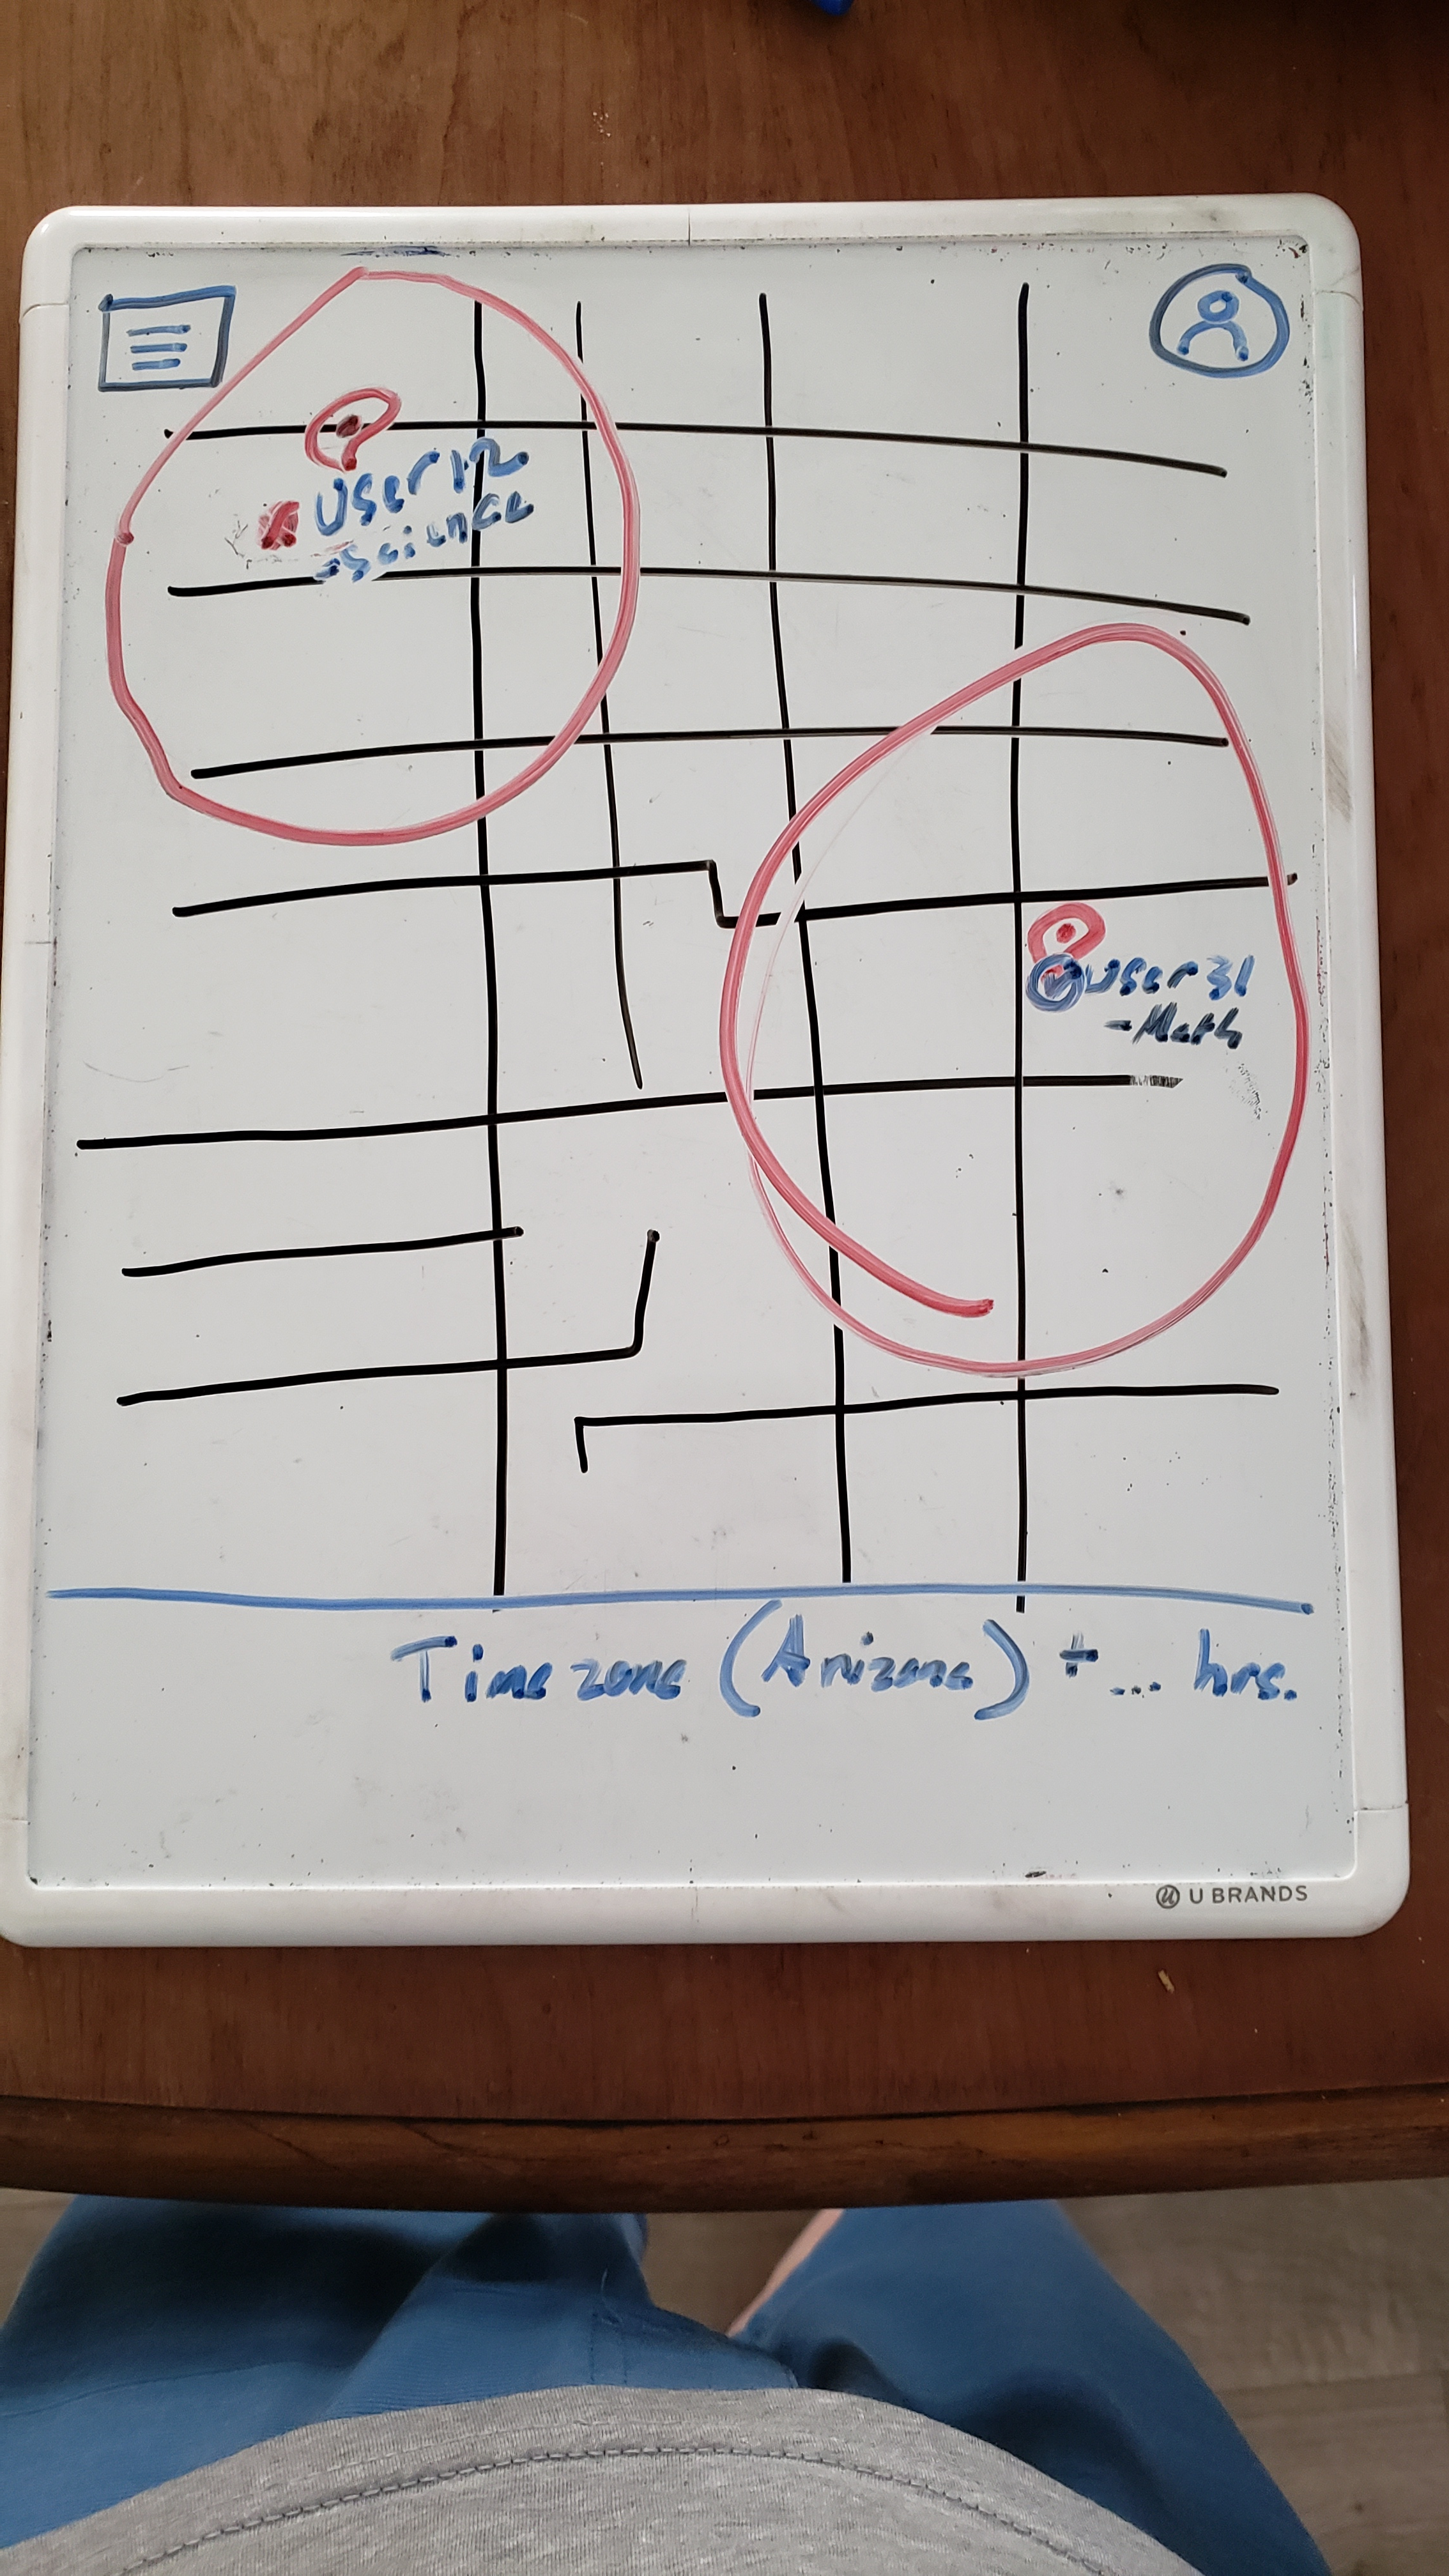 User12
-Science
User31
-Math
Timezone (Arizona) + ... hrs.
U BRANDS